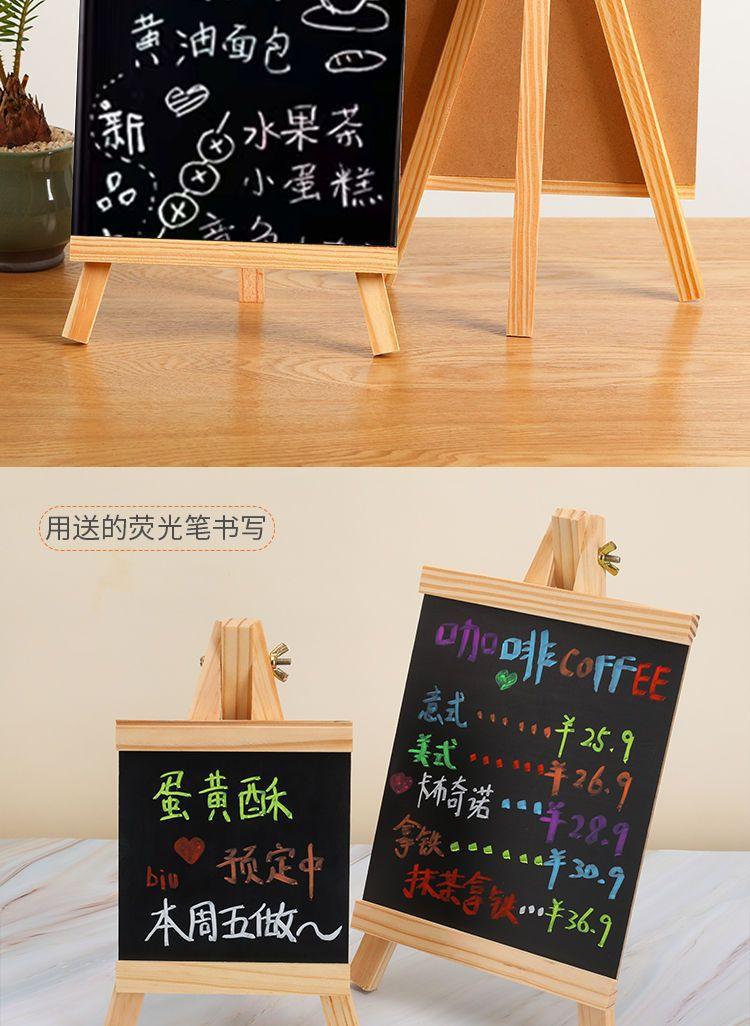 黄油面包
新
水果茶
小蛋糕
用送的荧光笔书写
咖啡COFFEE
意式······¥25.9
美式······¥26.9
卡布奇诺···¥28.9
拿铁······¥30.9
抹茶拿铁···¥36.9
蛋黄酥
biu 预定中
本周五做~